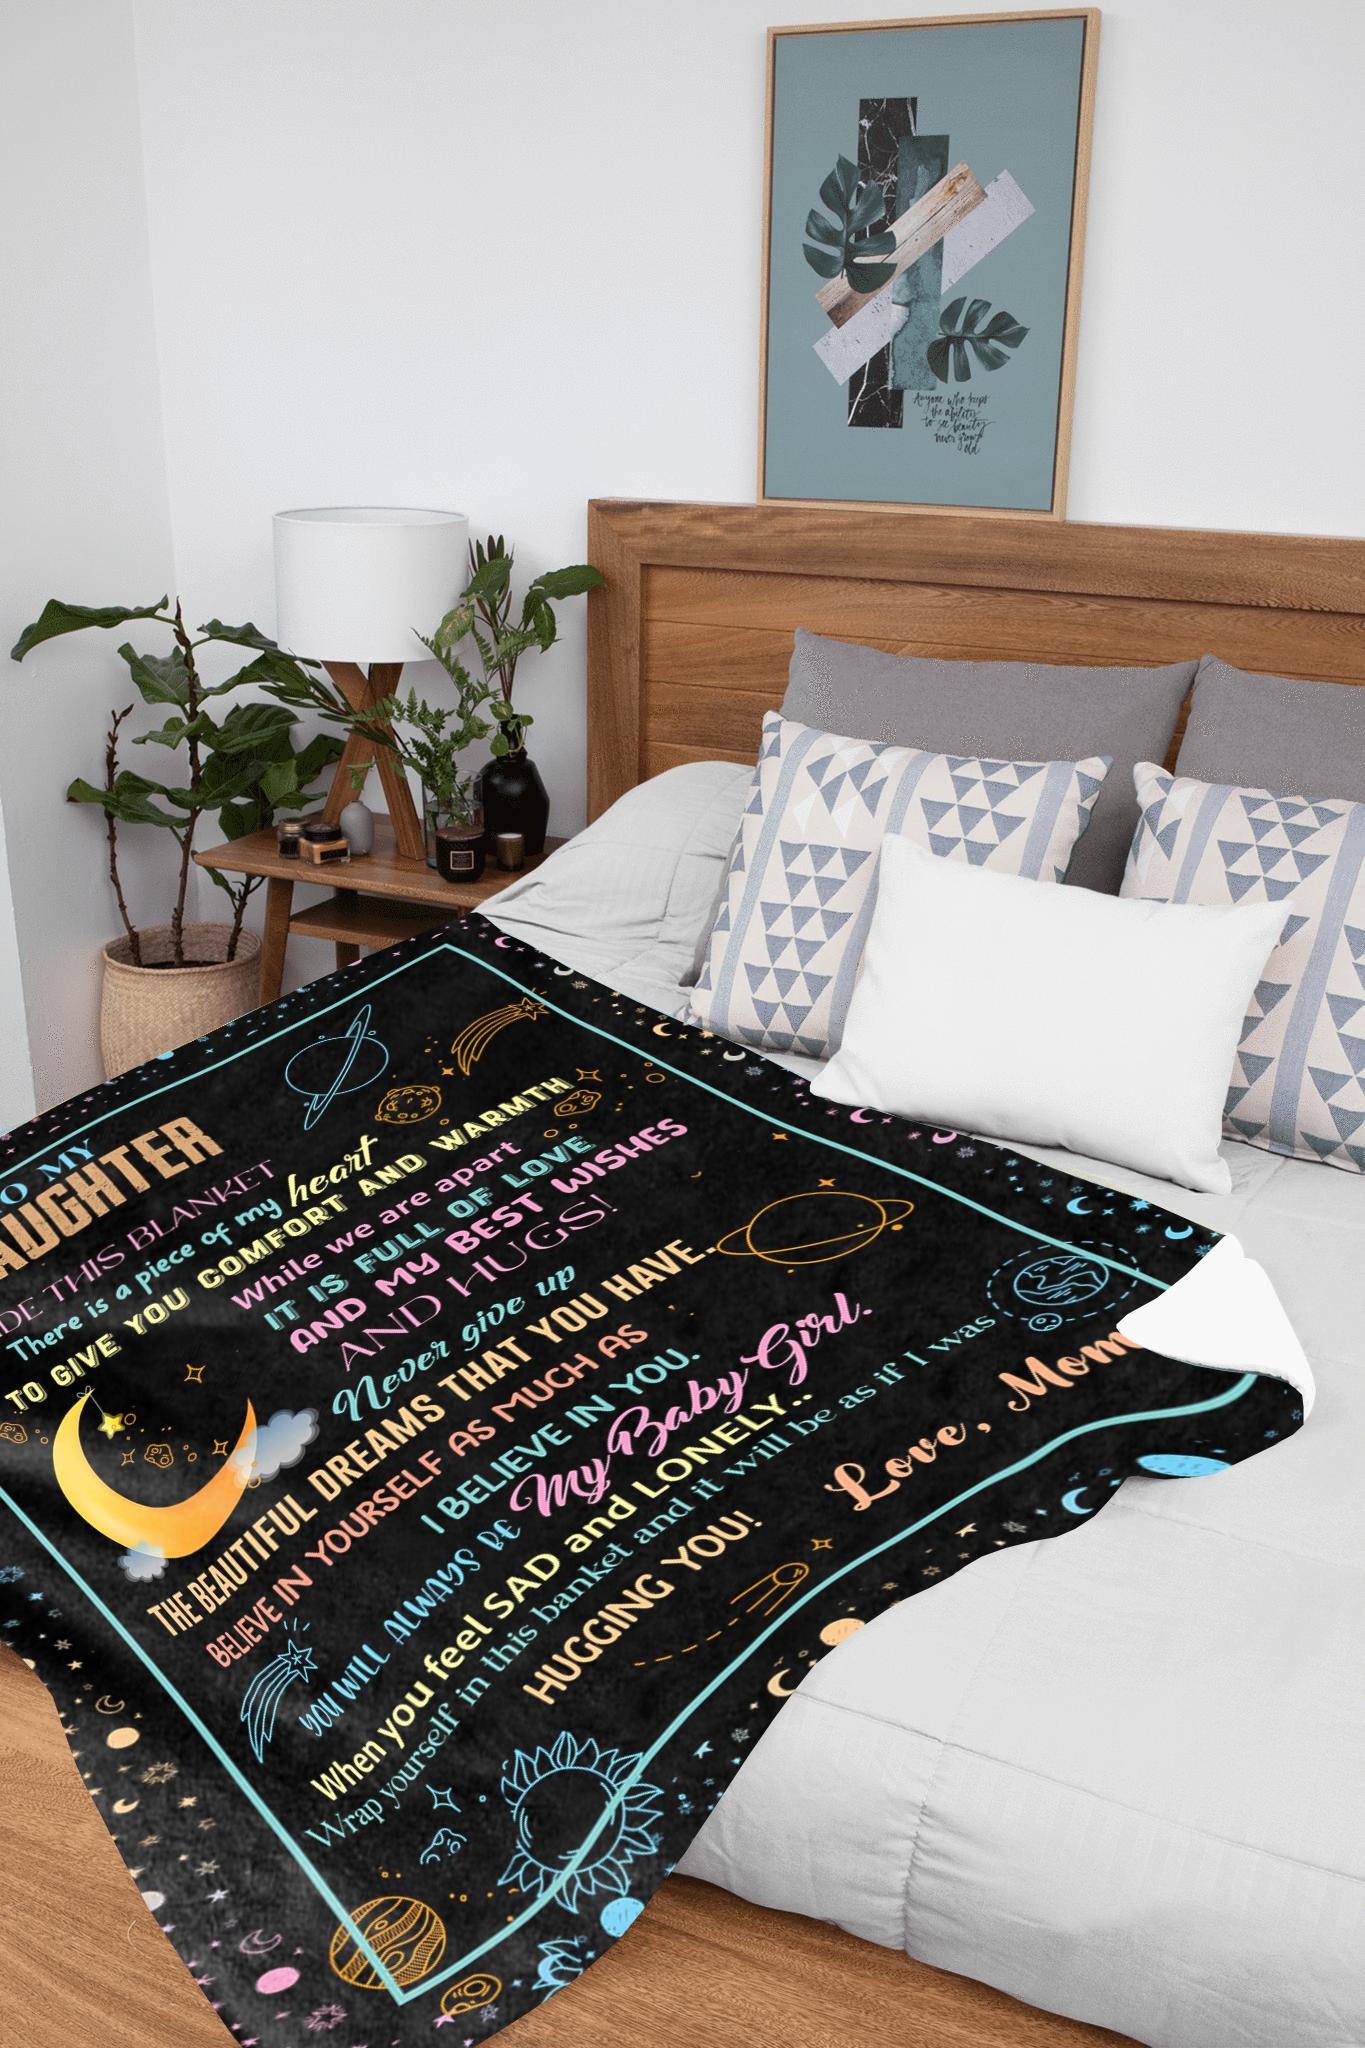 Anyone who keeps
the ability
to see beauty
never grows
old
TO MY
DAUGHTER
THIS BLANKET
There is a piece of my heart
TO GIVE YOU COMFORT AND WARMTH
While we are apart
IT IS FULL OF LOVE
AND MY BEST WISHES
AND HUGS!
Never give up
THE BEAUTIFUL DREAMS THAT YOU HAVE.
BELIEVE IN YOURSELF AS MUCH AS
I BELIEVE IN YOU.
YOU WILL ALWAYS BE My Baby Girl.
When you feel SAD and LONELY..
Wrap yourself in this banket and it will be as if I was
HUGGING YOU!
Love, Mom